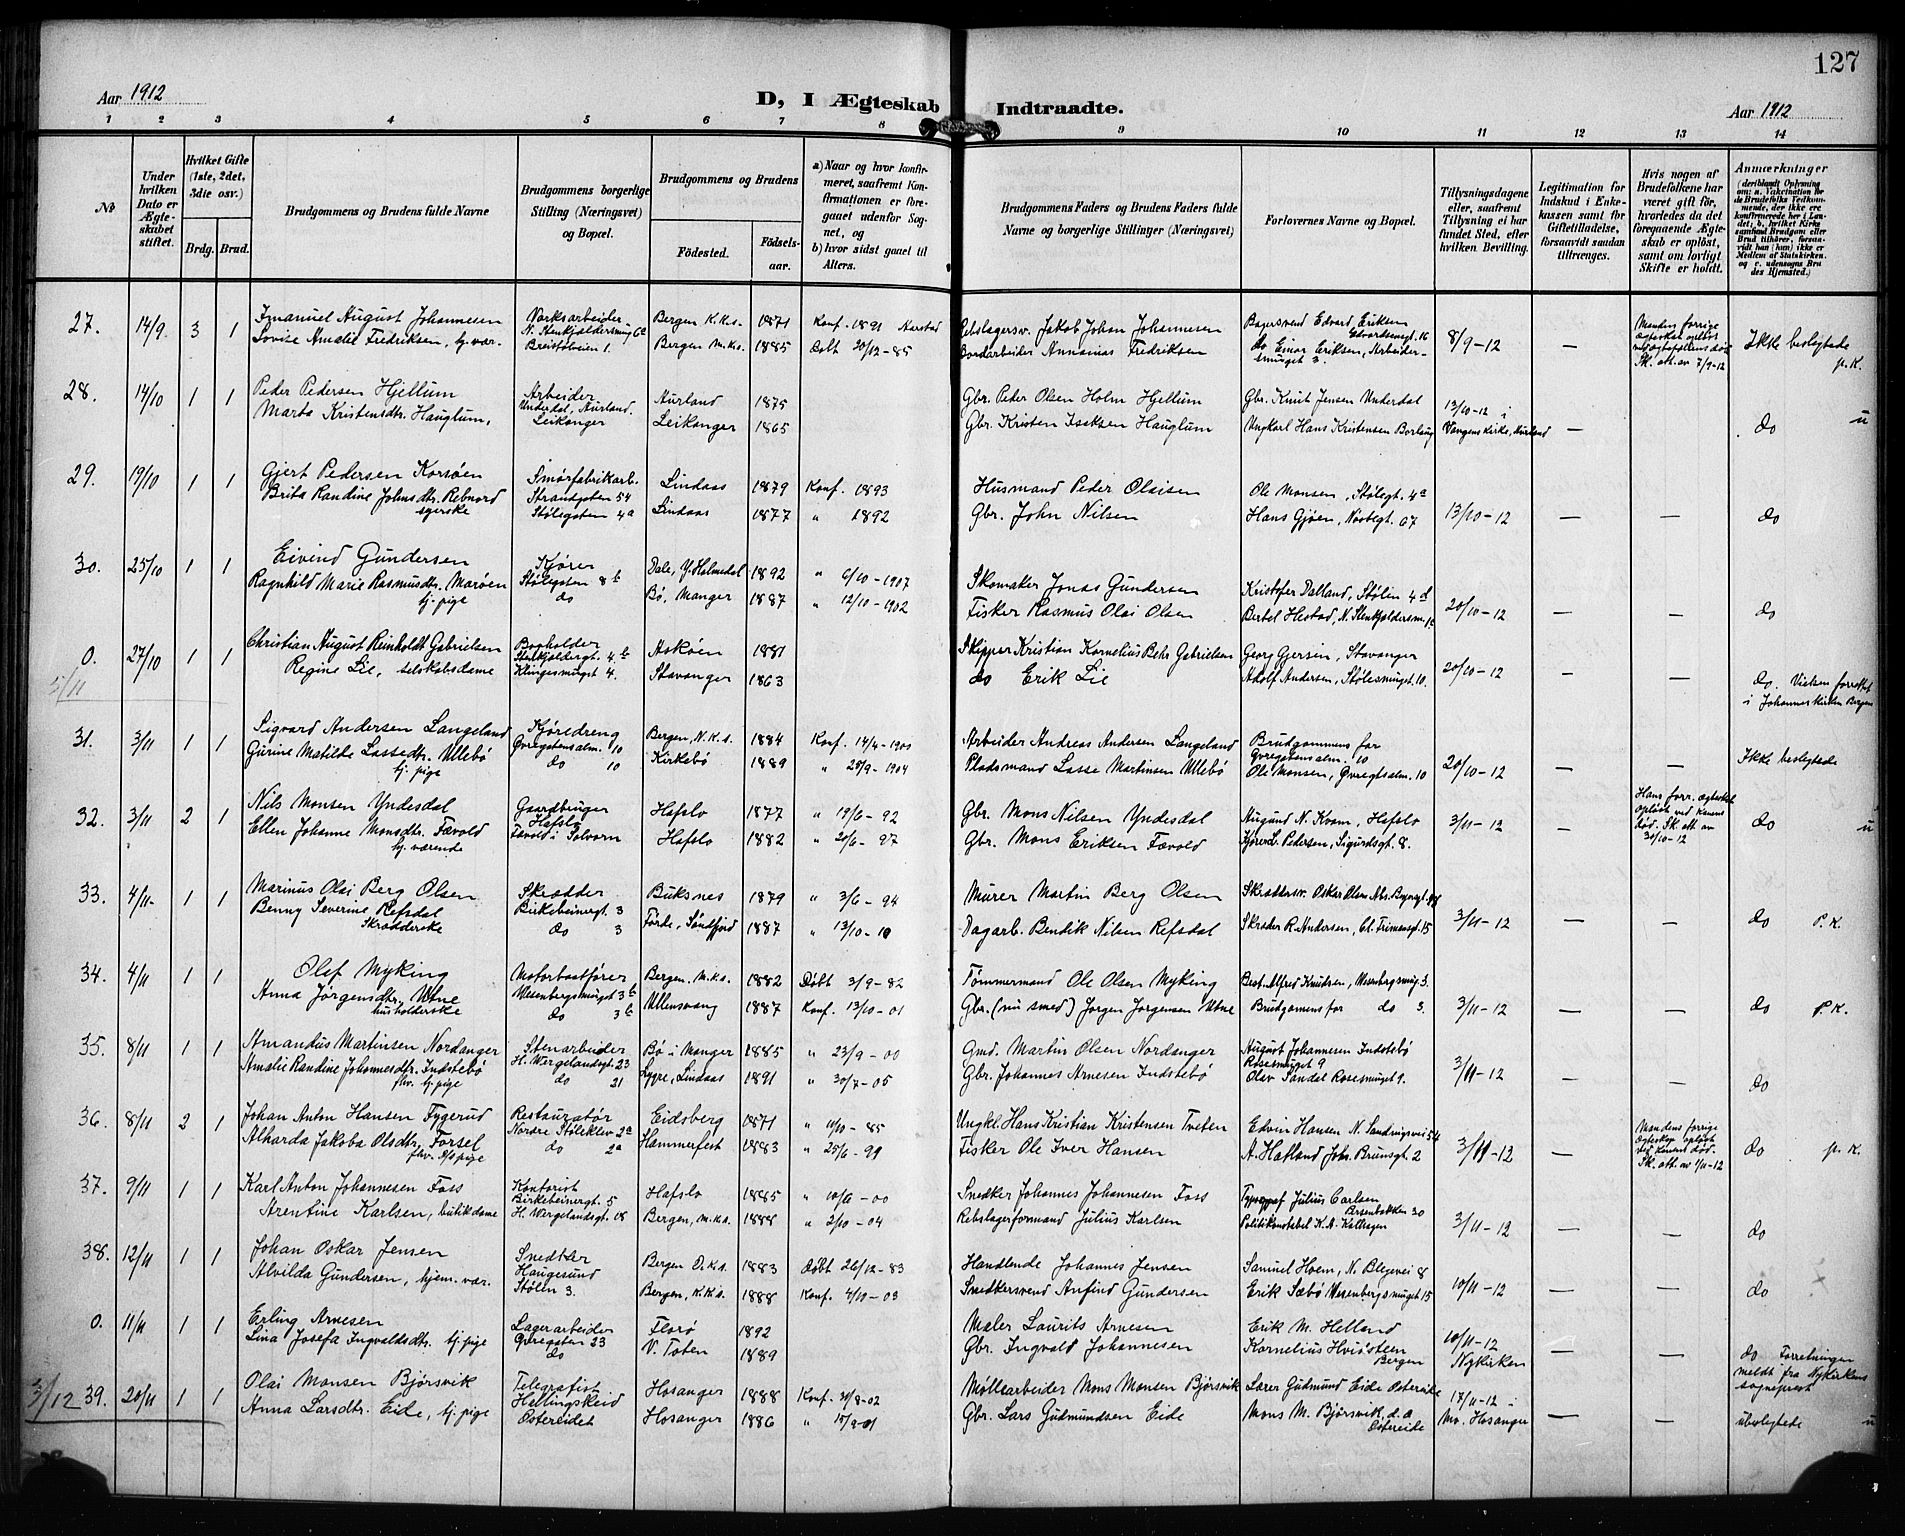 127
Aar 1912
D, I Ægteskab Indtraadte.
Aar 1912
1 2 3 4 5 6 7 8 9 10 11 12 13 14
No
Under hvilken Dato er Ægteskabet stiftet.
Hvilket Gifte (1ste, 2det, 3die osv.)
Brdg. Brud.
Brudgommens og Brudens fulde Navne
Brudgommens borgerlige Stilling (Næringsvei) og Bopæl.
Brudgommens og Brudens
Fødested.
Fødselsaar.
a) Naar og hvor konfirmeret, saafremt Konfirmationen er foregaaet udenfor Sognet, og
b) hvor sidst gaaet til Alters.
Brudgommens Faders og Brudens Faders fulde Navne og borgerlige Stillinger (Næringsvei)
Forlovernes Navne og Bopæl.
Tillysningsdagene eller, saafremt Tillysning ei har fundet Sted, efter hvilken Bevilling.
Legitimation for Indskud i Enkekassen samt for Giftetilladelse, forsaavidt saadan tiltrænges.
Hvis nogen af Brudefolkene har været gift før, hvorledes da det foregaaende Ægteskab er opløst, samt om lovligt Skifte er holdt.
Anmærkninger
27. 14/9 3 1 Imanuel August Johannesen
Lovise Amalie Fredriksen, hj. vær.
Bergen K.ks. 1871 Konf. 1891 Aarstad
Bergen M.ks. 1885 Døbt 30/12-85
Rebslagersv. Jakob Johan Johannesen
Bordarbeider Annanias Fredriksen
Bagersvend Edvard Eriksen
do Einar Eriksen, Arbeidersmuget 3.
8/9-12 —
Mandens forrige ægteskab opløst ved døds. Sk. att. av 7/9-12
Ikke beslegtede p. K.
28. 14/10 1 1 Peder Pedersen Hjellum
Marta Kristensdtr. Hauglum,
Arbeider
Underdal, Aurland.
Leikanger
Aurland 1875
Leikanger 1865
Gbr. Peder Olsen Holm Hjellum
Gbr. Kristen Isaksen Hauglum
Gbr. Knut Jensen Underdal
Ungkarl Hans Kristensen Borlaug
13/10-12 i Vangens Kirke, Aurland — do u
29. 19/10 1 1 Gjert Pedersen Korsøen
Brita Randine Johnsdtr. Rebnord
sgerske
Smørfabrikarb.
Strandgaten 54
Stølegaten 4a
Lindaas 1879 Konf. 1893
Lindaas 1877 " 1892
Husmand Peder Olaisen
Gbr. John Nilsen
Ole Monsen, Stølegt. 4a
Hans Gjøen, Nøstegt. 67
13/10-12 — — do
30. 25/10 1 1 Eivind Gundersen
Ragnhild Marie Rasmusdtr. Marøen
tj. pige
Kjører
Stølegaten 8b
do
Dale, Y. Holmedal 1892 " 6/10-1907
Bø, Manger 1887 " 12/10-1902
Skomaker Jonas Gundersen
Fisker Rasmus Olai Olsen
Kristofer Dalland, Stølen 4d
Bertel Hestad, N. Stenkjeldersm. 1c
20/10-12 — — do
0. 27/10 1 1 Christian August Reinholdt Gabrielsen
Regine Lie, selskabsdame
5/11
Bogholder
Stenkjeldergt. 4b
Klingesmuget 4.
Askøen 1881
Stavanger 1863
Skipper Kristian Kornelius Behr Gabrielsen
do Erik Lie
Georg Gjersin, Stavanger
Adolf Andersen, Stølesmuget 10.
20/10-12 — —
do. Vielsen forrettet i Johanneskirken Bergen
31. 3/11 1 1 Sigvard Andersen Langeland
Gurine Matilde Lassedtr. Ullebø
tj. pige
Kjøredreng
Øvregatensalm. 10
do 10
Bergen, N.ks. 1884 Konf. 14/4-1901
Kirkebø 1889 " 28/9-1904
Arbeider Andreas Andersen Langeland
Pladsmand Lasse Martinsen Ullebø
Brudgommens far
Øvregatensalm. 10
Ole Monsen, Øvregtsalm. 10
20/10-12 — — Ikke beslegtede
32. 3/11 2 1 Nils Monsen Yndesdal
Ellen Johanne Monsdtr. Fævold
hj. værende
Gaardbruger
Hafslo
Fævold i Solvorn
Hafslo 1877 " 19/6-92
Hafslo 1882 " 20/6-97
Gbr. Mons Nilsen Yndesdal
Gbr. Mons Eriksen Fævold
Augund N. Kvam, Hafslo
Kjører L. Pedersen, Sigurdsgt. 8.
3/11-12 —
Hans forr. ægteskab opløst ved konens død. Sk. att. av 30/10-12
do u
33. 4/11 1 1 Marinus Olai Berg Olsen
Benny Severine Refsdal
Skrædderske
Skrædder
Birkebeinergt. 3
do 3
Buksnes 1879 " 3/6-94
Førde, Søndfjord 1887 " 13/10-10
Murer Martin Berg Olsen
Dagarb. Bendik Nilsen Refsdal
Skræder R. Andersen, Cl. Frimansgt. 15
3/11-12 — — do P. K.
34. 4/11 1 1 Olaf Myking
Anna Jørgensdtr. Utne
husholderske
Motorbaatfører
Wesenbergsmuget 3b
do 3b
Bergen, M.ks. 1882 Døbt 3/9-82
Ullensvang 1887 Konf. 13/10-01
Tømmermand Ole Olsen Myking
Gbr. (nu smed) Jørgen Jørgensen Utne
Best. Alfred Knudsen, Wesenbergsmug 3.
Brudgomens far do 3.
3/11-12 — — do P. K.
35. 8/11 1 1 Amandus Martinsen Nordanger
Amalie Randine Johannesdtr. Indstebø
fhv. tj. pige
Stenarbeider
H. Wergelandsgt. 23
do 21
Bø i Manger 1885 " 23/9-00
Lygre, Lindaas 1891 " 30/7-05
Gmd. Martin Olsen Nordanger
Gbr. Johannes Arnesen Indstebø
August Johannesen Indstebø
Rosesmuget 9
Olav Sandal Rosesmuget 9.
3/11-12 — — do
36. 8/11 2 1 Johan Anton Hansen Fygerud
Alharda Jakoba Olsdtr. Forsel
Restauratør
Nordre Støleklev 2a
do 2a
Eidsberg 1871 " 11/10-85
Hammerfest 1883 " 25/6-99
Ungkl. Hans Kristian Kristensen Tveten
Fisker Ole Iver Hansen
Edvin Hansen N. Sandvigsvei 54
A. Hafland Joh. Brunsgt. 2
3/11-12 —
Mandens forrige ægteskap opløst ved konens død. Sk. att. av 1/11-12
do p. K.
37. 9/11 1 1 Karl Anton Johannesen Foss
Arentine Karlsen, butikdame
Kontorist
Birkebeinergt. 5
H. Wergelandsgt. 18
Hafslo 1885 " 10/6-00
Bergen, M.ks. 1888 " 2/10-04
Snedker Johannes Johannesen Foss
Rebslagerformand Julius Karlsen
Typograf Julius Carlsen
Politikonstabel K. A. Kellesen
3/11-12 — — do
38. 12/11 1 1 Johan Oskar Jensen
Alvilda Gundersen, hjem. vær.
Snedker
Haugesund
Stølen 3.
Bergen D.ks. 1883 Døbt 26/12-83
Bergen, K.ks. 1888 Konf. 4/10-03
Handlende Johannes Jensen
Snedkersvend Anfind Gundersen
Samuel Hoem, N. Blegevei 8
Erik Sæbø Wesenbergsmuget 15
10/11-12 — — do
0. 11/11 1 1 Erling Arnesen
Lina Josefa Ingvaldsdtr. tj. pige
Lagerarbeider
Øvregaten 23
do
Florø 1892
V. Toten 1889
Maler Laurits Arnesen
Gbr. Ingvald Johannesen
Erik M. Helland
Kornelius Hvidsteen
Bergen
10/11-12 Nykirken — —
do Forretningen meldt fra Nykirkens sogneprest
3/12 39. 20/11 1 1 Olai Monsen Bjørsvik
Anna Larsdtr. Eide, tj. pige
Telegrafist
Hellingskeid
Ostereidet
Hosanger 1888 Konf. 31/8-02
Hosanger 1886 " 15/9-01
Møllearbeider Mons Monsen Bjørsvik
Gbr. Lars Gudmundsen Eide
Lærer Gudmund Eide Ostereide
Mons M. Bjørsvik, d. a
Ostereide
17/11-12 i Hosanger — —
ubeslegtede u